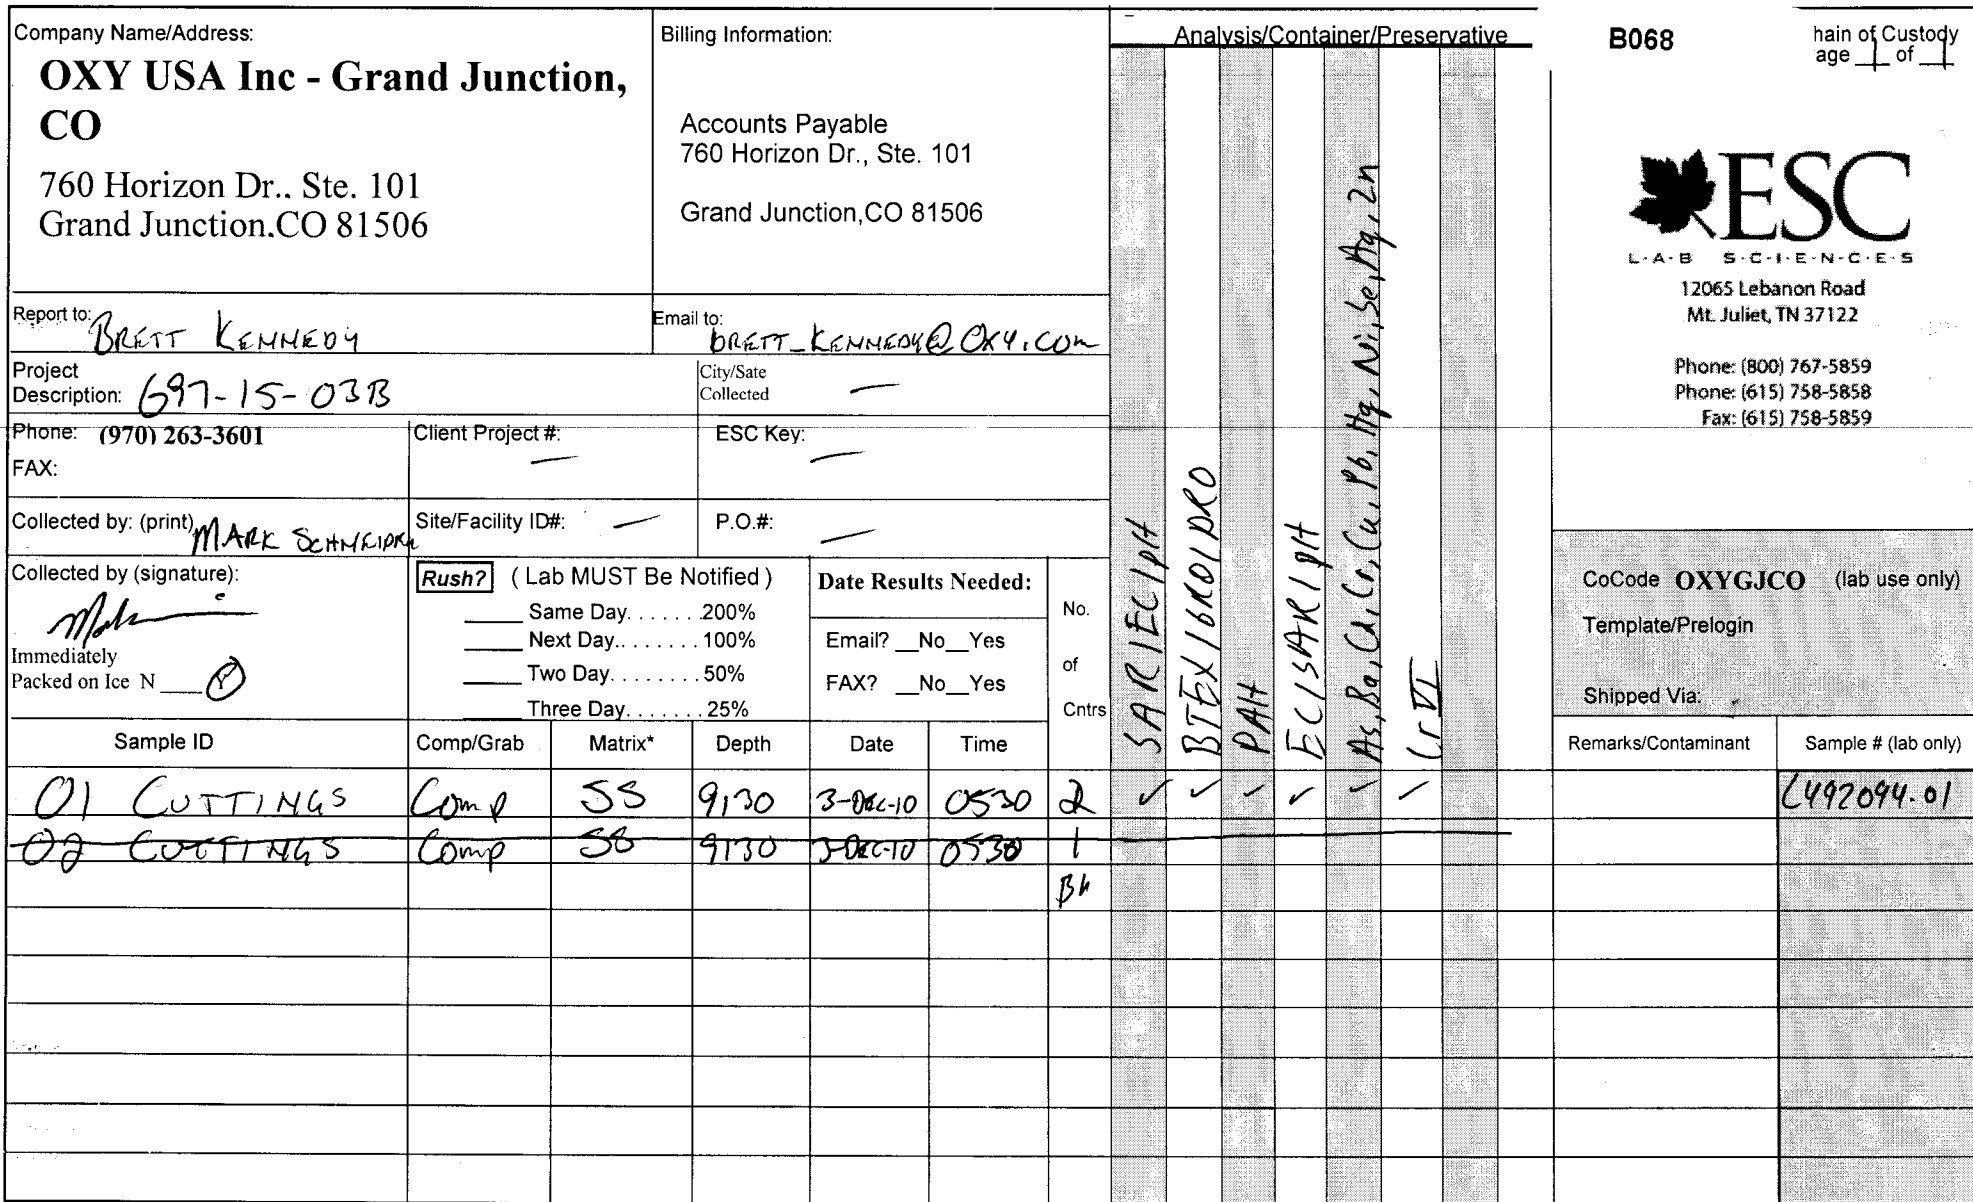 Company Name/Address:
OXY USA Inc - Grand Junction,
CO
760 Horizon Dr.. Ste. 101
Grand Junction.CO 81506
Billing Information:
Accounts Payable
760 Horizon Dr., Ste. 101
Grand Junction,CO 81506
Analysis/Container/Preservative
B068
hain of Custody
age 1 of 1
ESC
L·A·B S·C·I·E·N·C·E·S
12065 Lebanon Road
Mt. Juliet, TN 37122
Phone: (800) 767-5859
Phone: (615) 758-5858
Fax: (615) 758-5859
Report to: BRETT KENNEDY
Email to: BRETT_KENNEDY@OXY.COM
Project
Description: 697-15-03B
City/Sate
Collected —
Phone: (970) 263-3601
FAX:
Client Project #: —
ESC Key: —
Collected by: (print) MARK SCHNEIDER
Site/Facility ID#: —
P.O.#: —
Collected by (signature):
Immediately
Packed on Ice N ___ Y
Rush? ( Lab MUST Be Notified )
____ Same Day. . . . . . .200%
____ Next Day.. . . . . . . 100%
____ Two Day. . . . . . . . 50%
____ Three Day. . . . . . . 25%
Date Results Needed:
Email? __No__Yes
FAX? __No__Yes
No.
of
Cntrs
SAR/EC/pH
BTEX/GRO/DRO
PAH
EC/SAR/pH
As, Ba, Cd, Cr, Cu, Pb, Hg, Ni, Se, Ag, Zn
Cr VI
CoCode OXYGJCO (lab use only)
Template/Prelogin
Shipped Via:
Sample ID Comp/Grab Matrix* Depth Date Time Remarks/Contaminant Sample # (lab only)
01 CUTTINGS Comp SS 9130 3-DEC-10 0530 2 ✓ ✓ ✓ ✓ ✓ ✓ L492094-01
02 CUTTINGS Comp SS 9130 3-DEC-10 0530 1